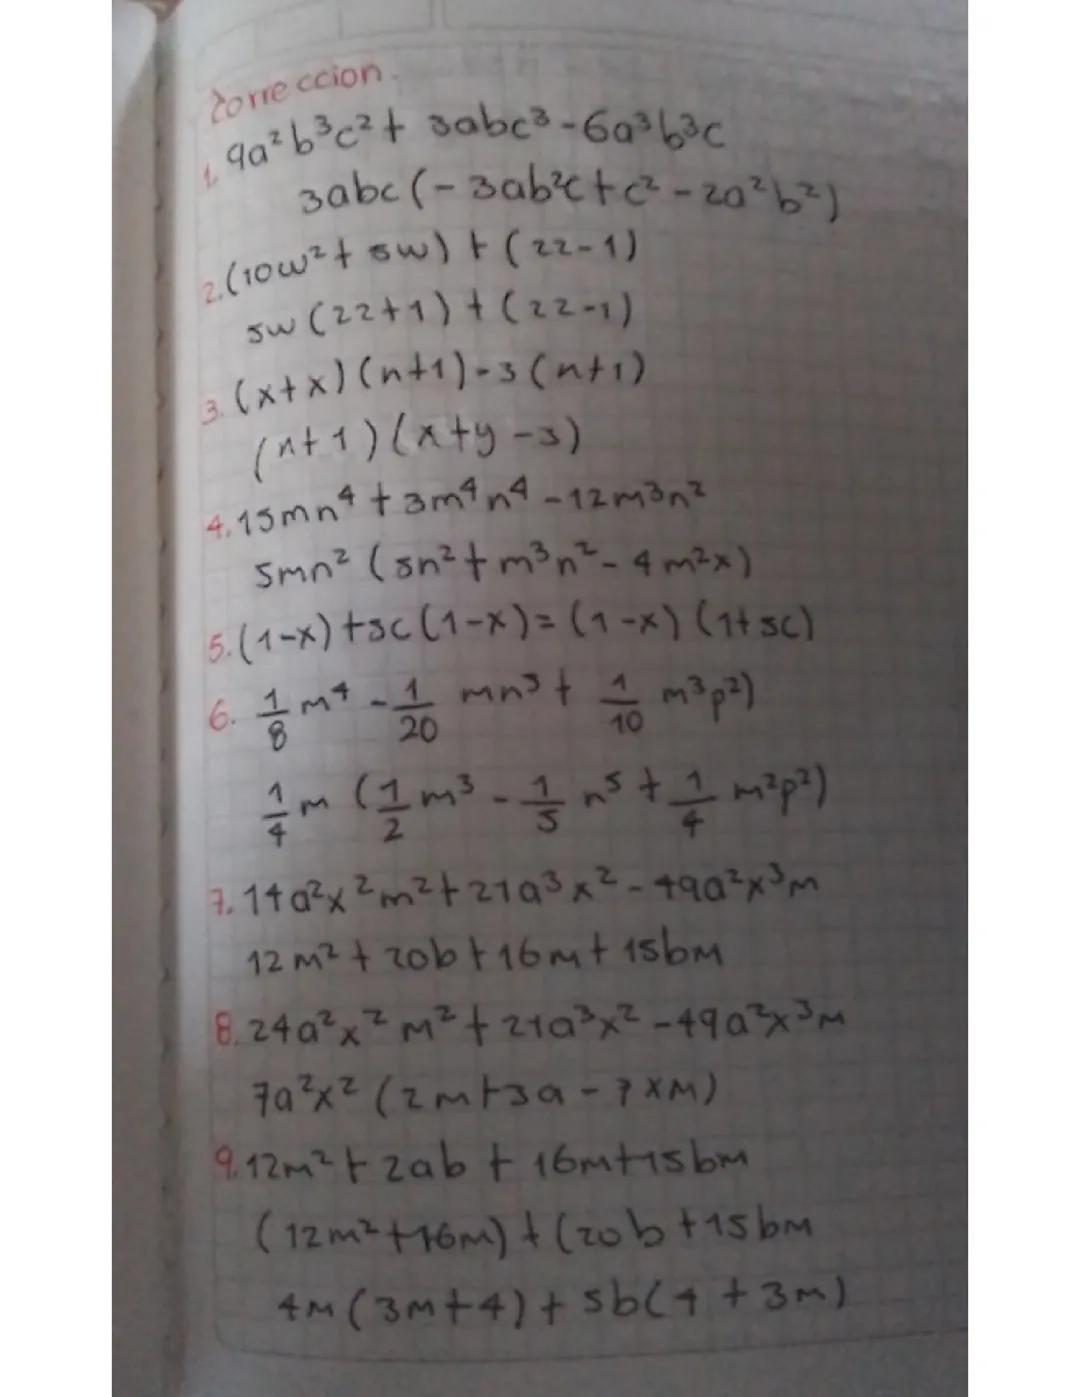 Correccion.
1. 9a²b³c² + 3abc³ - 6a³b³c
3abc (- 3ab²c + c² - 2a²b²)
2. (10w² + 5w) + (2z - 1)
5w (2z + 1) + (2z - 1)
3. (x + x) (n + 1) - 3 (n + 1)
(n + 1) (x + y - 3)
4. 15mn⁴ + 3m⁴n⁴ - 12m³n²
5mn² (5n² + m³n² - 4m²x)
5. (1 - x) + 5c (1 - x) = (1 - x) (1 + 5c)
6. 1/8 m⁴ - 1/20 mn³ + 1/10 m³p²)
1/4 m (1/2 m³ - 1/5 n⁵ + 1/4 m²p²)
7. 14a²x²m² + 21a³x² - 49a²x³m
12m² + 20b + 16m + 15bm
8. 24a²x²m² + 21a³x² - 49a²x³m
7a²x² (2m + 3a - 7xm)
9. 12m² + 2ab + 16m + 15bm
(12m² + 16m) + (20b + 15bm
4m (3m + 4) + 5b (4 + 3m)